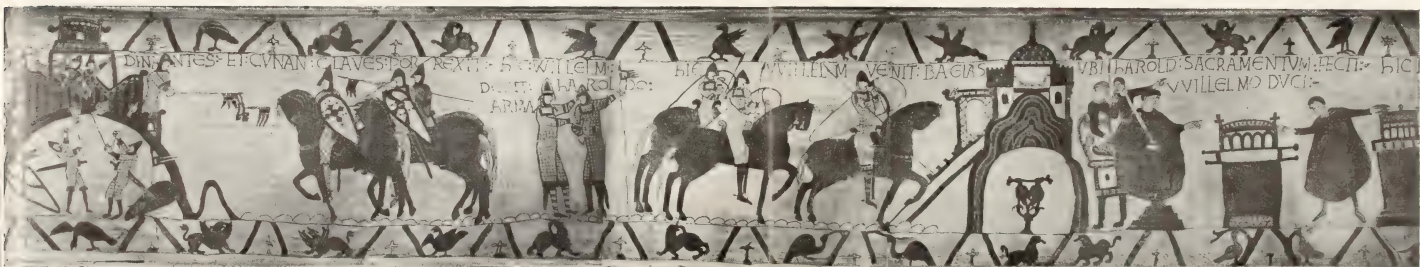 DINANTES: ET: CVNAN: CLAVES: PORREXIT: hIC: WILLELM:
DEDIT: hAROLDO:
ARMA
hIE VVILLELM VENIT: BAGIAS
VBI hAROLD: SACRAMENTVM: FECIT:
VVILLELMO DVCI:
hIC